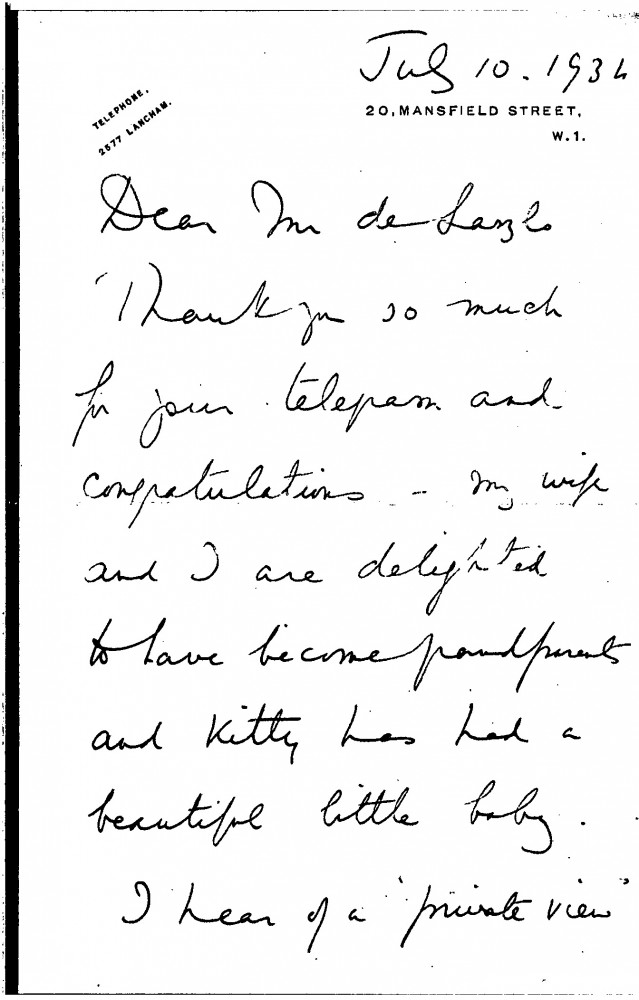 July 10. 1934
TELEPHONE,
2577 LANGHAM.
20, MANSFIELD STREET,
W.1.
Dear Mr de Laszlo
Thank you so much
for your telegram and
congratulations - my wife
and I are delighted
to have become grandparents
and Kitty has had a
beautiful little baby.
I hear of a "private view"